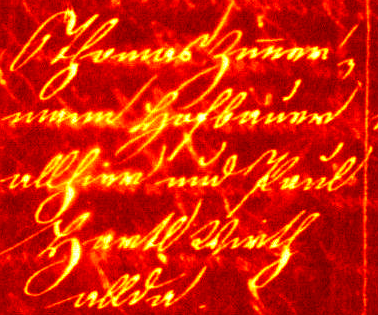 Thomas Zimer,
mann Hofbauer
allhier und Paul
Hartl Wirth
allda.